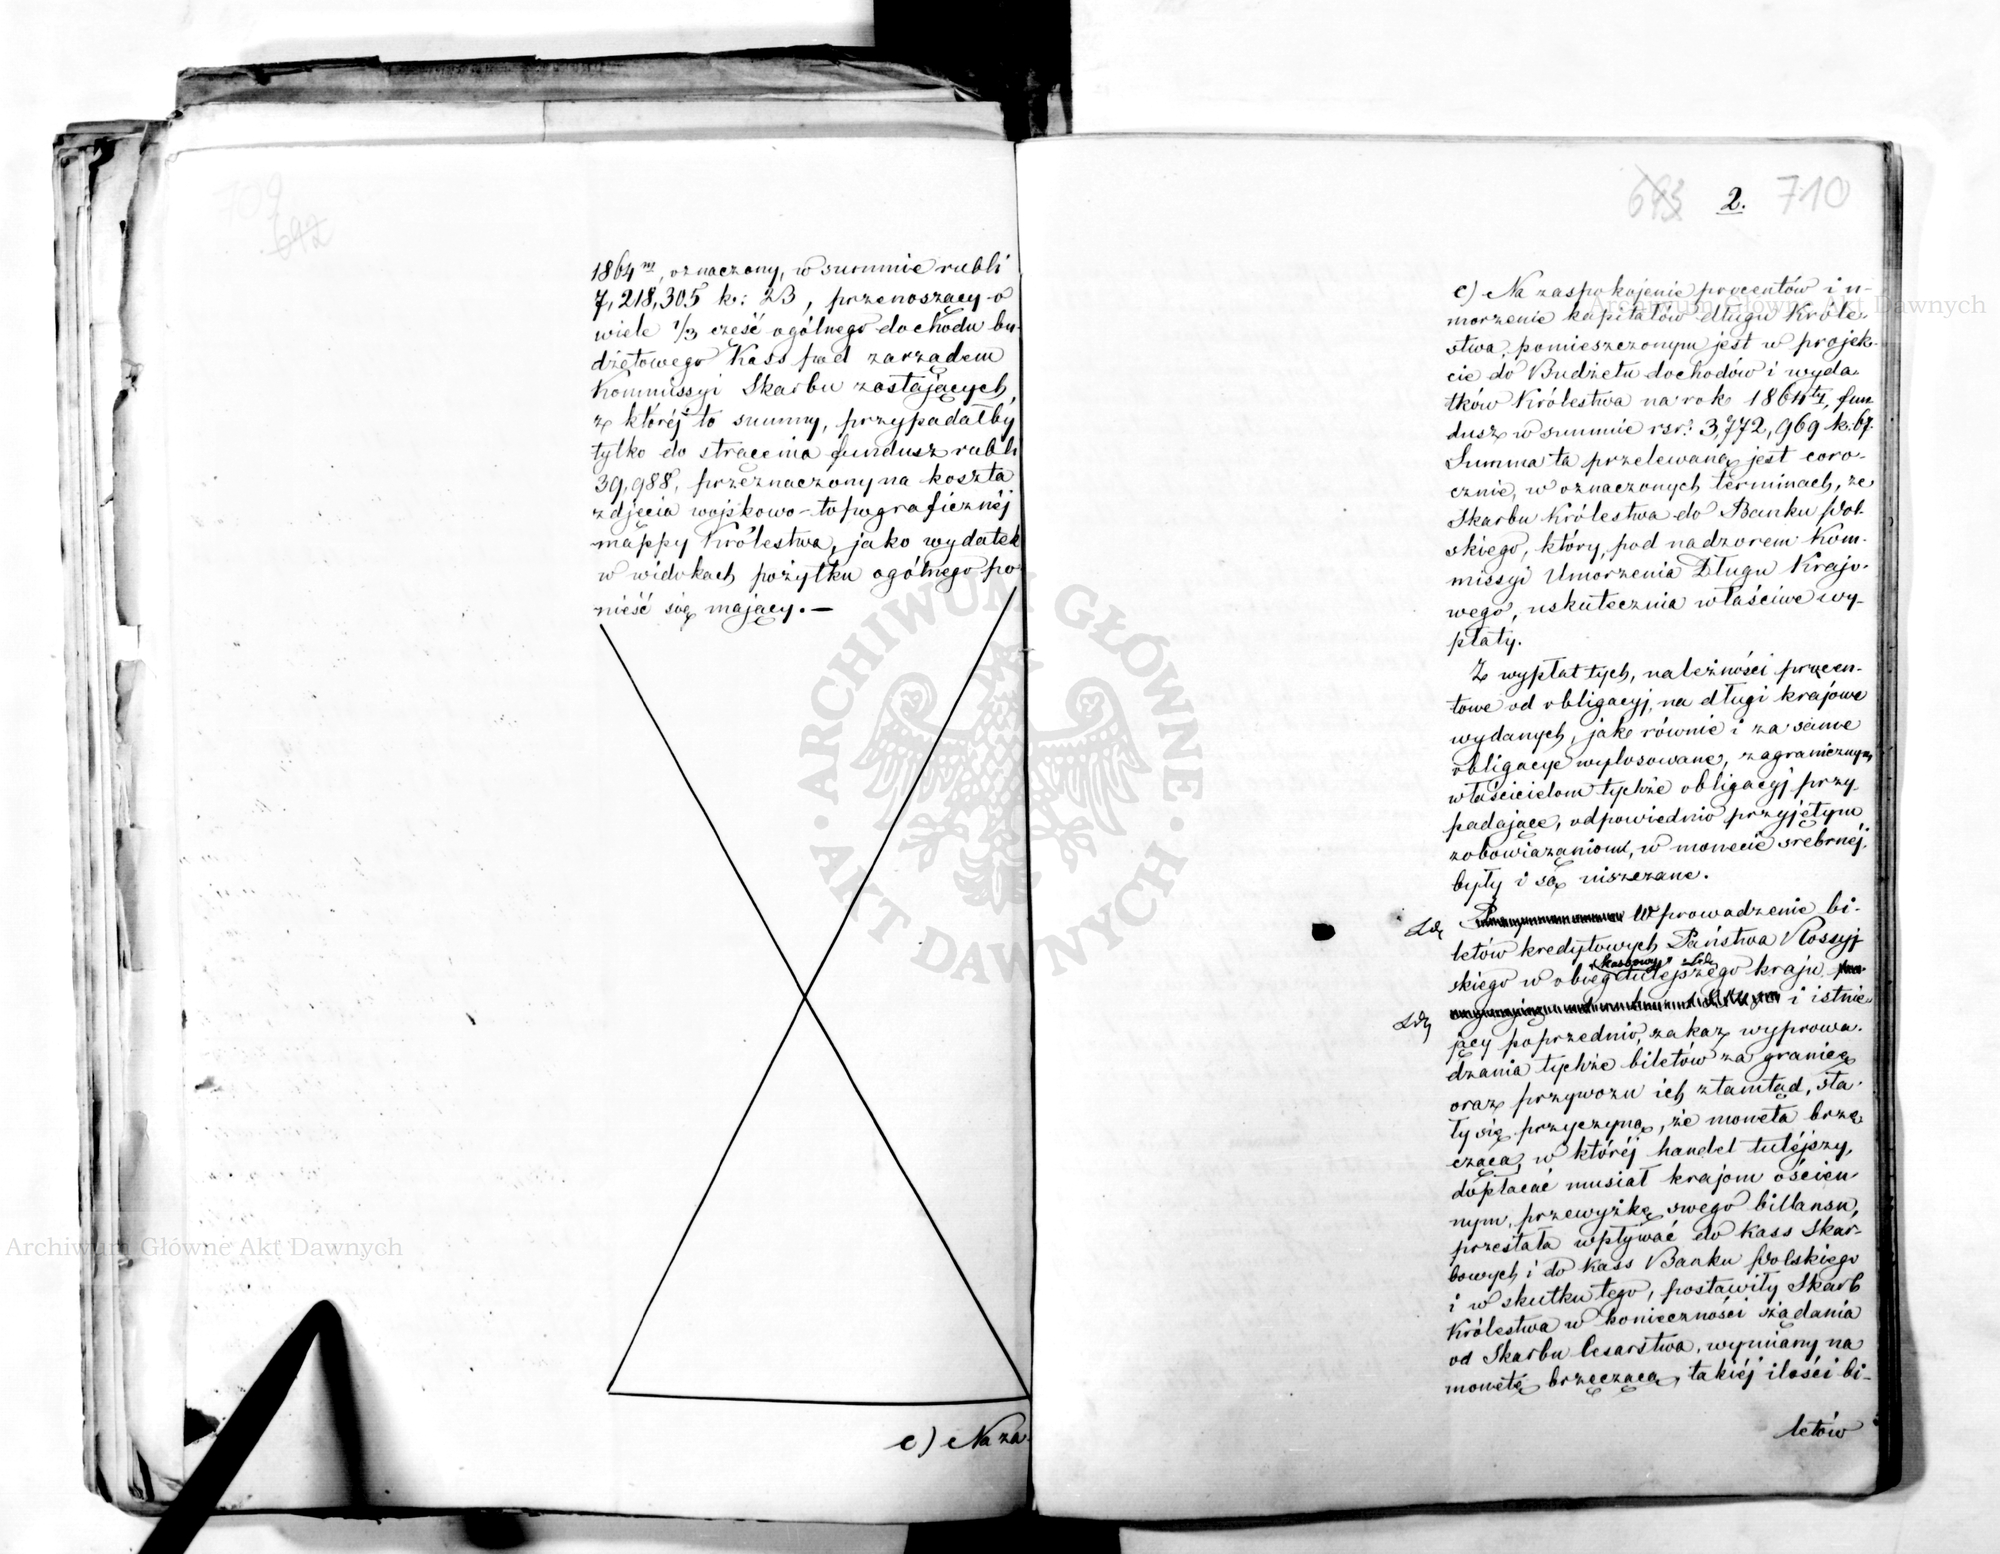 709
692
1864 m, oznaczony, w summie rubli
7,218,305 k: 23, przenoszący o
wiele 1/3 część ogólnego dochodu bu-
dżetowego Kass pod zarządem
Kommissyi Skarbu zostających,
z której to summy, przypadałby
tylko do strącenia fundusz rubli
39,988, przeznaczony na koszta
zdjęcia wojskowo-topograficznéj
mappy Królestwa, jako wydatek
w widokach pożytku ogólnego po-
nieść się mający. —
c) Na za-
693 2. 710
c) Na zaspokojenie procentów i u-
morzenie kapitałów długu Króle-
stwa, pomieszczonym jest w projek-
cie do Budżetu dochodów i wyda-
tków Królestwa na rok 1864ty, fun
dusz w summie rsr: 3,772,969 k. 67.
Summa ta przelewaną jest coro-
cznie, w oznaczonych terminach, ze
Skarbu Królestwa do Banku Pol-
skiego, który, pod nadzorem Kom-
missyi Umorzenia Długu Krajo-
wego, uskutecznia właściwe wy-
płaty.
Z wypłat tych, należności procen-
towe od obligacyj, na długi krajowe
wydanych, jako równie i za same
obligacye wylosowane, zagranicznym
właścicielom tychże obligacyj przy-
padające, odpowiednio przyjętym
zobowiązaniom, w monecie srebrnéj,
były i są uiszczane.
Wprowadzenie bi-
letów kredytowych Państwa Rossyj
skiego w obieg skarbowy tutejszego kraju
i istnie-
jący poprzednio, zakaz wyprowa-
dzania tychże biletów za granicę
oraz przywozu ich ztamtąd, sta-
ły się przyczyną, że moneta brzę-
cząca, w któréj handel tutéjszy,
dopłacać musiał krajom ościen-
nym, przewyżkę swego billansu,
przestała wpływać do kass Skar-
bowych i do kass Banku Polskiego
i w skutku tego, postawiły Skarb
Królestwa w konieczności żądania
od Skarbu Cesarstwa, wymiany na
monetę brzęczącą, takiéj ilości bi-
letów
Archiwum Główne Akt Dawnych
Archiwum Główne Akt Dawnych
ARCHIWUM GŁÓWNE
AKT DAWNYCH